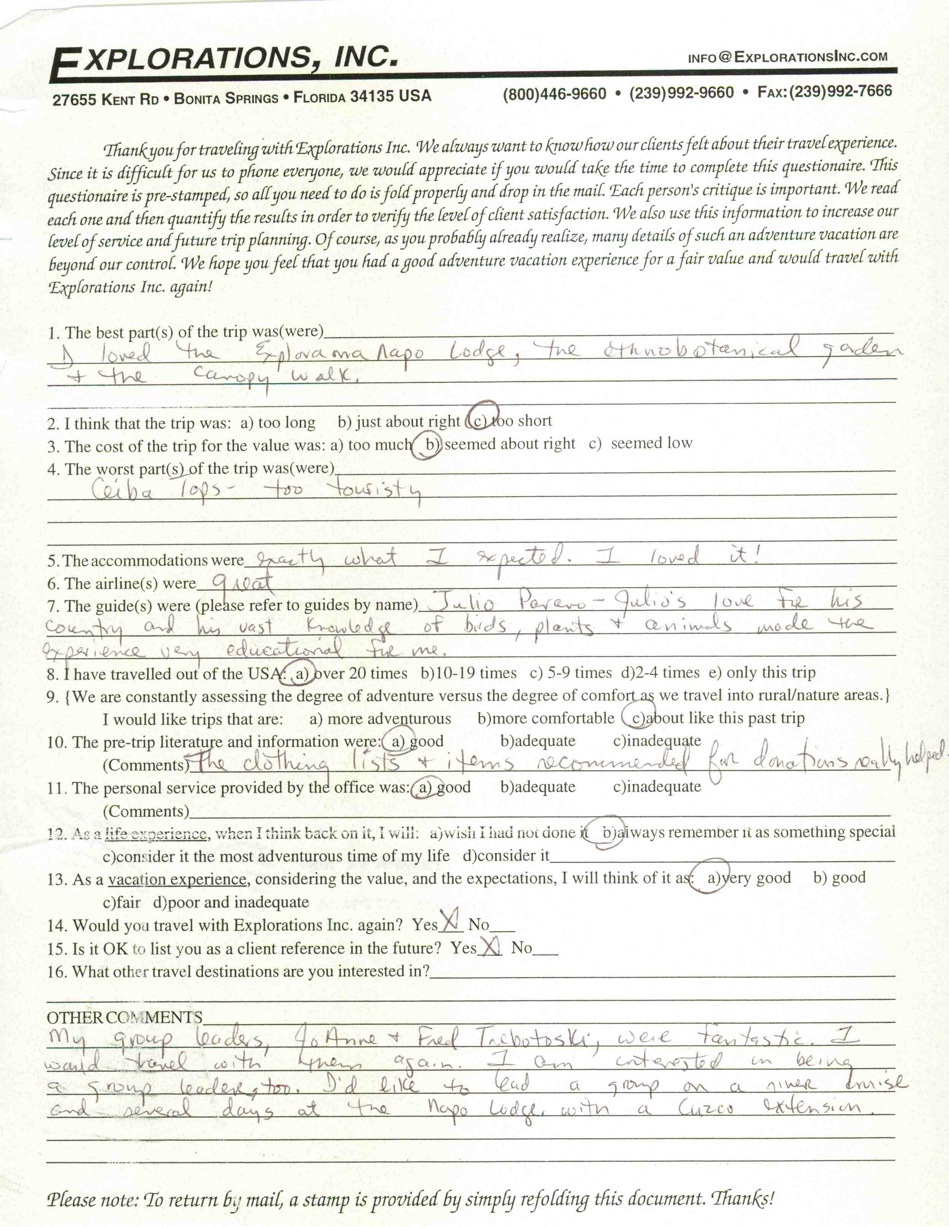 EXPLORATIONS, INC.
INFO@EXPLORATIONSINC.COM
27655 KENT RD • BONITA SPRINGS • FLORIDA 34135 USA (800)446-9660 • (239)992-9660 • FAX:(239)992-7666
Thank you for traveling with Explorations Inc. We always want to know how our clients felt about their travel experience.
Since it is difficult for us to phone everyone, we would appreciate if you would take the time to complete this questionaire. This
questionaire is pre-stamped, so all you need to do is fold properly and drop in the mail. Each person's critique is important. We read
each one and then quantify the results in order to verify the level of client satisfaction. We also use this information to increase our
level of service and future trip planning. Of course, as you probably already realize, many details of such an adventure vacation are
beyond our control. We hope you feel that you had a good adventure vacation experience for a fair value and would travel with
Explorations Inc. again!
1. The best part(s) of the trip was(were)
I loved the Explorama Napo Lodge, the ethnobotanical garden
+ the canopy walk.
2. I think that the trip was: a) too long b) just about right c) too short
3. The cost of the trip for the value was: a) too much b) seemed about right c) seemed low
4. The worst part(s) of the trip was(were)
Ceiba Tops - too touristy
5. The accommodations were exactly what I expected. I loved it!
6. The airline(s) were great
7. The guide(s) were (please refer to guides by name) Julio Pavaro - Julio's love for his
country and his vast knowledge of birds, plants + animals made the
experience very educational for me.
8. I have travelled out of the USA: a) over 20 times b)10-19 times c) 5-9 times d)2-4 times e) only this trip
9. {We are constantly assessing the degree of adventure versus the degree of comfort as we travel into rural/nature areas.}
I would like trips that are: a) more adventurous b)more comfortable c)about like this past trip
10. The pre-trip literature and information were: a) good b)adequate c)inadequate
(Comments) The clothing lists + items recommended for donations really helped.
11. The personal service provided by the office was: a) good b)adequate c)inadequate
(Comments)
12. As a life experience, when I think back on it, I will: a)wish I had not done it b)always remember it as something special
c)consider it the most adventurous time of my life d)consider it
13. As a vacation experience, considering the value, and the expectations, I will think of it as: a)very good b) good
c)fair d)poor and inadequate
14. Would you travel with Explorations Inc. again? Yes X No
15. Is it OK to list you as a client reference in the future? Yes X No
16. What other travel destinations are you interested in?
OTHER COMMENTS
My group leaders, JoAnne + Fred Trebotoski, were fantastic. I
would travel with them again. I am interested in being
a group leader, too. I'd like to lead a group on a river cruise
and several days at the Napo Lodge, with a Cuzco extension.
Please note: To return by mail, a stamp is provided by simply refolding this document. Thanks!